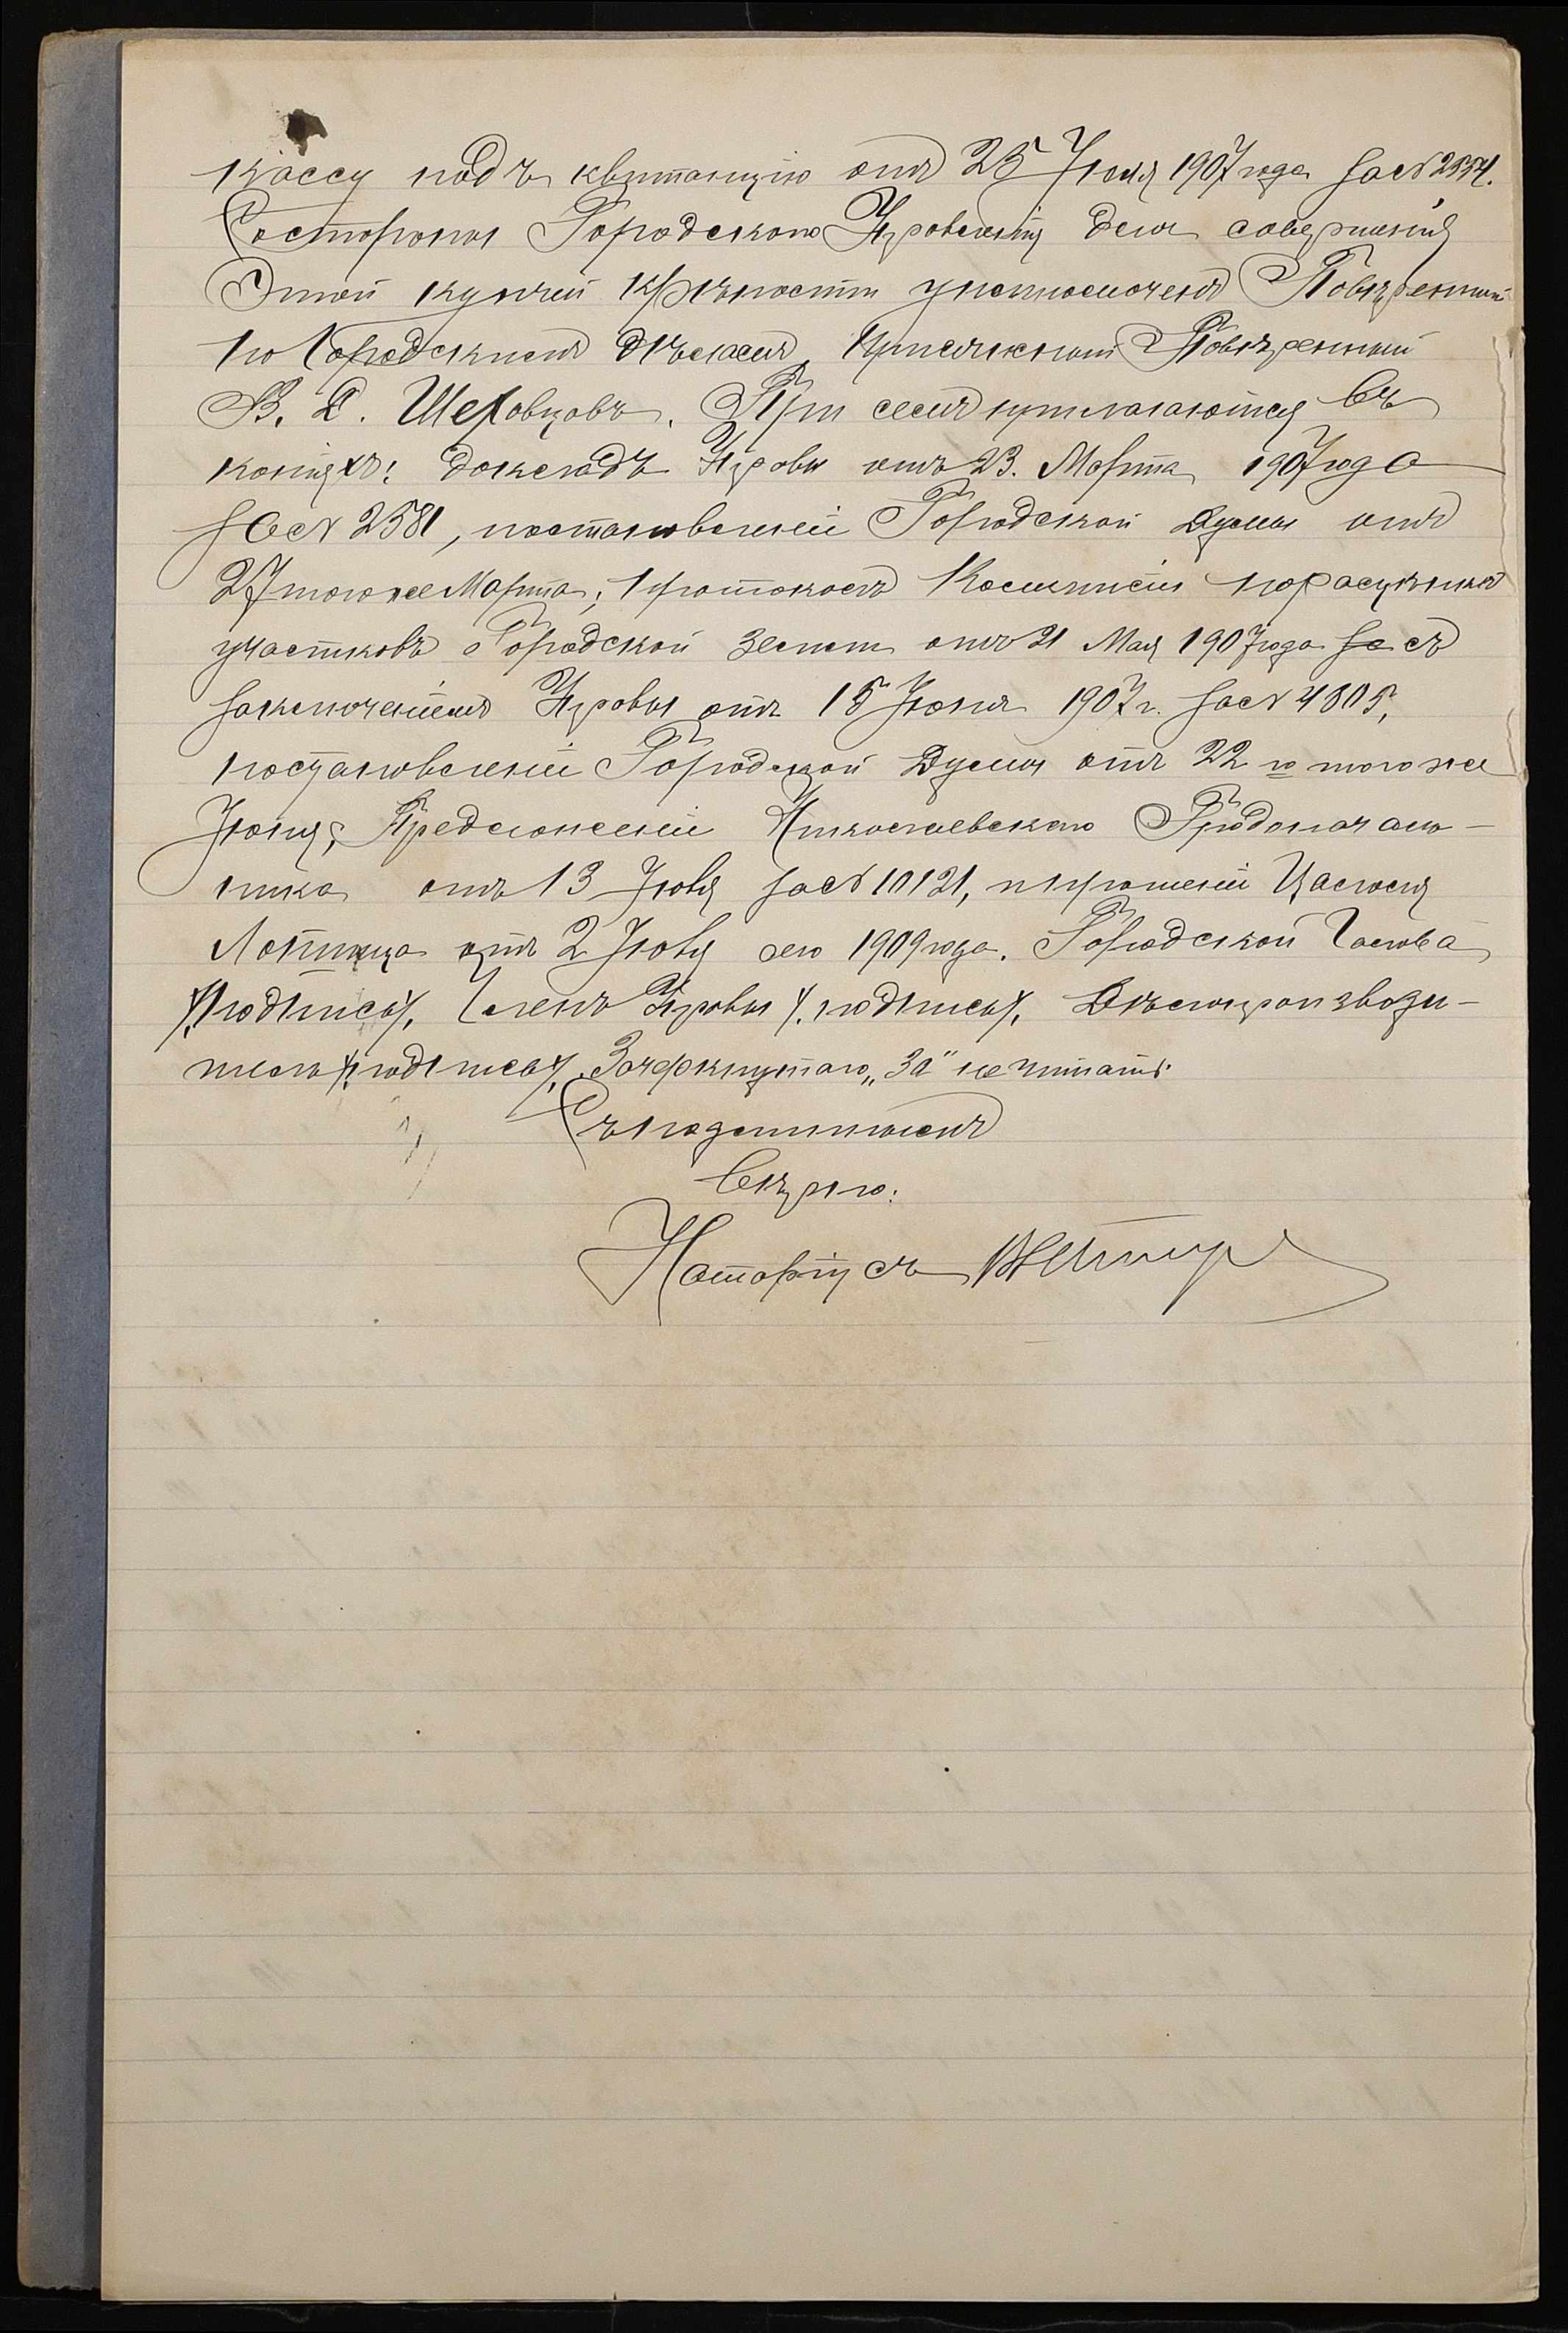 кассу подъ квитанцію отъ 25 Іюля 1907 года за № 2554.
Со стороны Городского Управленія для совершенія
Этой купчей крѣпости уполномоченъ Повѣренный
по Городскимъ дѣламъ, Присяжный Повѣренный
В. Д. Шеховцовъ. При семъ прилагаются въ
копіяхъ: докладъ Управы отъ 23. Марта 1907 года
за № 2581, постановленіе Городской Думы отъ
27 того же Марта; протоколъ Коммисіи по расцѣнкѣ
участковъ Городской земли отъ 21 Мая 1907 года за съ
заключеніемъ Управы отъ 15 Іюня 1907 г. за № 4805,
постановленіе Городской Думы отъ 22 го того же
Іюня; Предложеніе Николаевскаго Градоначаль-
ника отъ 13 Іюля за № 10121, и прошеніе
отъ 2 Іюля сего 1909 года. Городской Голова
/.подпись/. Членъ Управы /.подпись/. Дѣлопроизводи-
тель /.подпись/. Зачеркнутаго „за" не читать.
Съ подлиннымъ
вѣрно:
Нотаріусъ